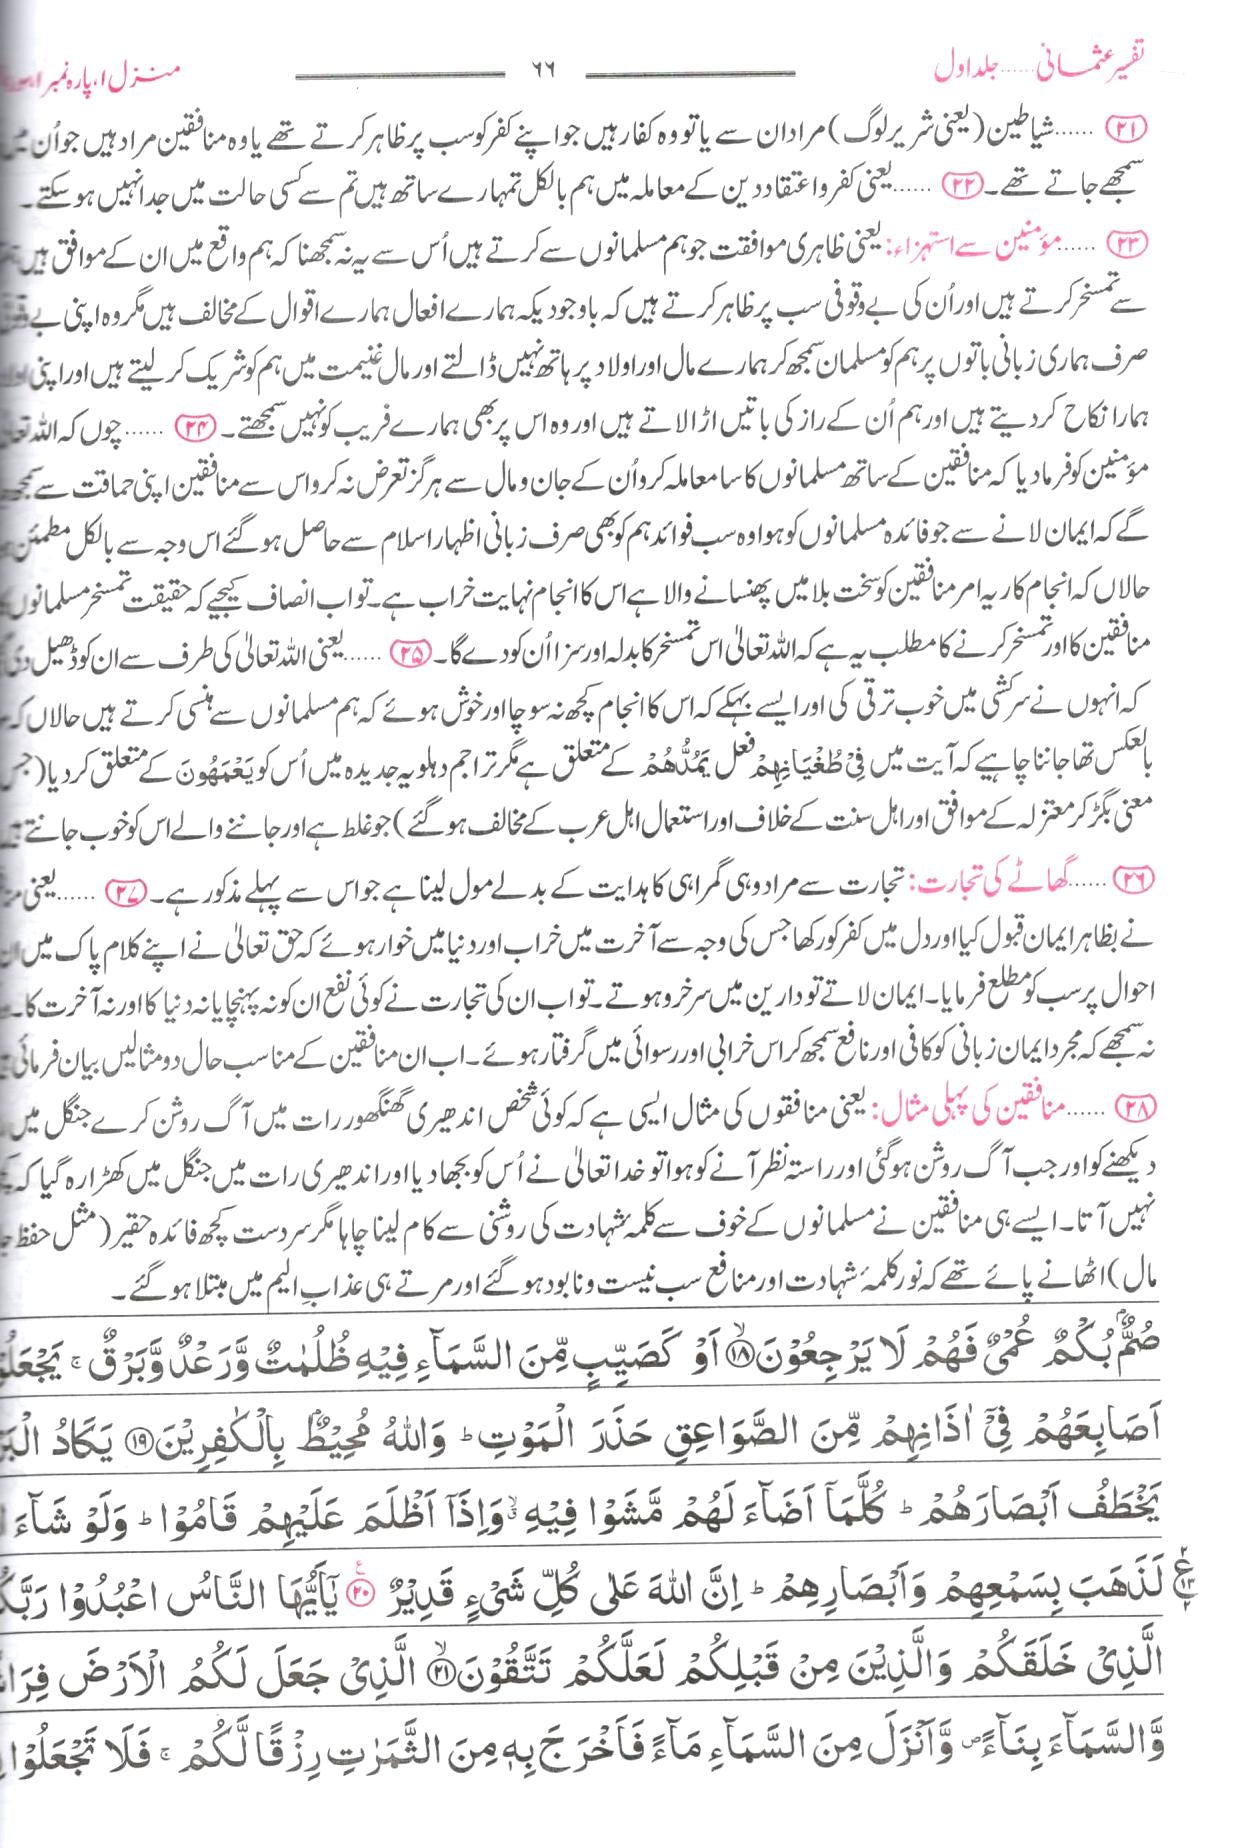 تفسیر عثمانی ...... جلد اول ۶۶ منزل ۱، پارہ نمبر ۱،
۲۱ ...... شیاطین (یعنی شریر لوگ) مراد ان سے یا تو وہ کفار ہیں جو اپنے کفر کو سب پر ظاہر کرتے تھے یا وہ منافقین مراد ہیں جو اُن میں
سمجھے جاتے تھے۔ ۲۲ ...... یعنی کفر و اعتقاد دین کے معاملہ میں ہم بالکل تمہارے ساتھ ہیں تم سے کسی حالت میں جدا نہیں ہو سکتے۔
۲۳ ...... مؤمنین سے استہزاء: یعنی ظاہری موافقت جو ہم مسلمانوں سے کرتے ہیں اُس سے یہ نہ سمجھنا کہ ہم واقع میں ان کے موافق ہیں
سے تمسخر کرتے ہیں اور اُن کی بے وقوفی سب پر ظاہر کرتے ہیں کہ باوجودیکہ ہمارے افعال ہمارے اقوال کے مخالف ہیں مگر وہ اپنی بے
صرف ہماری زبانی باتوں پر ہم کو مسلمان سمجھ کر ہمارے مال اور اولاد پر ہاتھ نہیں ڈالتے اور مال غنیمت میں ہم کو شریک کر لیتے ہیں اور اپنی
ہمارا نکاح کر دیتے ہیں اور ہم اُن کے راز کی باتیں اڑا لاتے ہیں اور وہ اس پر بھی ہمارے فریب کو نہیں سمجھتے۔ ۲۴ ...... چوں کہ اللہ
مؤمنین کو فرما دیا کہ منافقین کے ساتھ مسلمانوں کا سا معاملہ کرو اُن کے جان و مال سے ہرگز تعرض نہ کرو اس سے منافقین اپنی حماقت سے
گے کہ ایمان لانے سے جو فائدہ مسلمانوں کو ہوا وہ سب فوائد ہم کو بھی صرف زبانی اظہار اسلام سے حاصل ہو گئے اس وجہ سے بالکل مطمئن
حالاں کہ انجام کار یہ امر منافقین کو سخت بلا میں پھنسانے والا ہے اس کا انجام نہایت خراب ہے۔ تو اب انصاف کیجیے کہ حقیقت تمسخر مسلمانوں
منافقین کا اور تمسخر کرنے کا مطلب یہ ہے کہ اللہ تعالیٰ اس تمسخر کا بدلہ اور سزا اُن کو دے گا۔ ۲۵ ...... یعنی اللہ تعالیٰ کی طرف سے ان کو ڈھیل دی
کہ انہوں نے سرکشی میں خوب ترقی کی اور ایسے بہکے کہ اس کا انجام کچھ نہ سوچا اور خوش ہوئے کہ ہم مسلمانوں سے ہنسی کرتے ہیں حالاں کہ
بالعکس تھا جاننا چاہیے کہ آیت میں فِیْ طُغْیَانِہِمْ فعل یَمُدُّھُمْ کے متعلق ہے مگر تراجم دہلویہ جدیدہ میں اُس کو یَعْمَھُوْنَ کے متعلق کر دیا (جس
معنی بگڑ کر معتزلہ کے موافق اور اہل سنت کے خلاف اور استعمال اہل عرب کے مخالف ہو گئے) جو غلط ہے اور جاننے والے اس کو خوب جانتے
۲۶ ...... گھاٹے کی تجارت: تجارت سے مراد وہی گمراہی کا ہدایت کے بدلے مول لینا ہے جو اس سے پہلے مذکور ہے۔ ۲۷ ...... یعنی
نے بظاہر ایمان قبول کیا اور دل میں کفر کو رکھا جس کی وجہ سے آخرت میں خراب اور دنیا میں خوار ہوئے کہ حق تعالیٰ نے اپنے کلام پاک میں
احوال پر سب کو مطلع فرمایا۔ ایمان لاتے تو دارین میں سرخرو ہوتے۔ تو اب ان کی تجارت نے کوئی نفع ان کو نہ پہنچایا نہ دنیا کا اور نہ آخرت کا۔
نہ سمجھے کہ مجرد ایمان زبانی کو کافی اور نافع سمجھ کر اس خرابی اور رسوائی میں گرفتار ہوئے۔ اب ان منافقین کے مناسب حال دو مثالیں بیان فرمائی
۲۸ ...... منافقین کی پہلی مثال: یعنی منافقوں کی مثال ایسی ہے کہ کوئی شخص اندھیری گھنگھور رات میں آگ روشن کرے جنگل میں
دیکھنے کو اور جب آگ روشن ہو گئی اور راستہ نظر آنے کو ہوا تو خدا تعالیٰ نے اُس کو بجھا دیا اور اندھیری رات میں جنگل میں کھڑا رہ گیا کہ
نہیں آتا۔ ایسے ہی منافقین نے مسلمانوں کے خوف سے کلمۂ شہادت کی روشنی سے کام لینا چاہا مگر سردست کچھ فائدہ حقیر (مثل حفظ
مال) اٹھانے پائے تھے کہ نور کلمۂ شہادت اور منافع سب نیست و نابود ہو گئے اور مرتے ہی عذاب الیم میں مبتلا ہو گئے۔
صُمٌّۢ بُكْمٌ عُمْیٌ فَهُمْ لَا یَرْجِعُوْنَ ۱۸ۙ اَوْ كَصَیِّبٍ مِّنَ السَّمَآءِ فِیْهِ ظُلُمٰتٌ وَّرَعْدٌ وَّبَرْقٌ ۚ یَجْعَلُوْنَ
اَصَابِعَهُمْ فِیْۤ اٰذَانِهِمْ مِّنَ الصَّوَاعِقِ حَذَرَ الْمَوْتِ ؕ وَاللّٰهُ مُحِیْطٌۢ بِالْكٰفِرِیْنَ ۱۹ یَكَادُ الْبَرْ
یَخْطَفُ اَبْصَارَهُمْ ؕ كُلَّمَاۤ اَضَآءَ لَهُمْ مَّشَوْا فِیْهِ ۙۗ وَاِذَاۤ اَظْلَمَ عَلَیْهِمْ قَامُوْا ؕ وَلَوْ شَآءَ
لَذَهَبَ بِسَمْعِهِمْ وَاَبْصَارِهِمْ ؕ اِنَّ اللّٰهَ عَلٰى كُلِّ شَیْءٍ قَدِیْرٌ ۲۰ یٰۤاَیُّهَا النَّاسُ اعْبُدُوْا رَبَّكُ
الَّذِیْ خَلَقَكُمْ وَالَّذِیْنَ مِنْ قَبْلِكُمْ لَعَلَّكُمْ تَتَّقُوْنَ ۲۱ۙ الَّذِیْ جَعَلَ لَكُمُ الْاَرْضَ فِرَا
وَّالسَّمَآءَ بِنَآءً ۪ وَّاَنْزَلَ مِنَ السَّمَآءِ مَآءً فَاَخْرَجَ بِهٖ مِنَ الثَّمَرٰتِ رِزْقًا لَّكُمْ ۚ فَلَا تَجْعَلُوْا